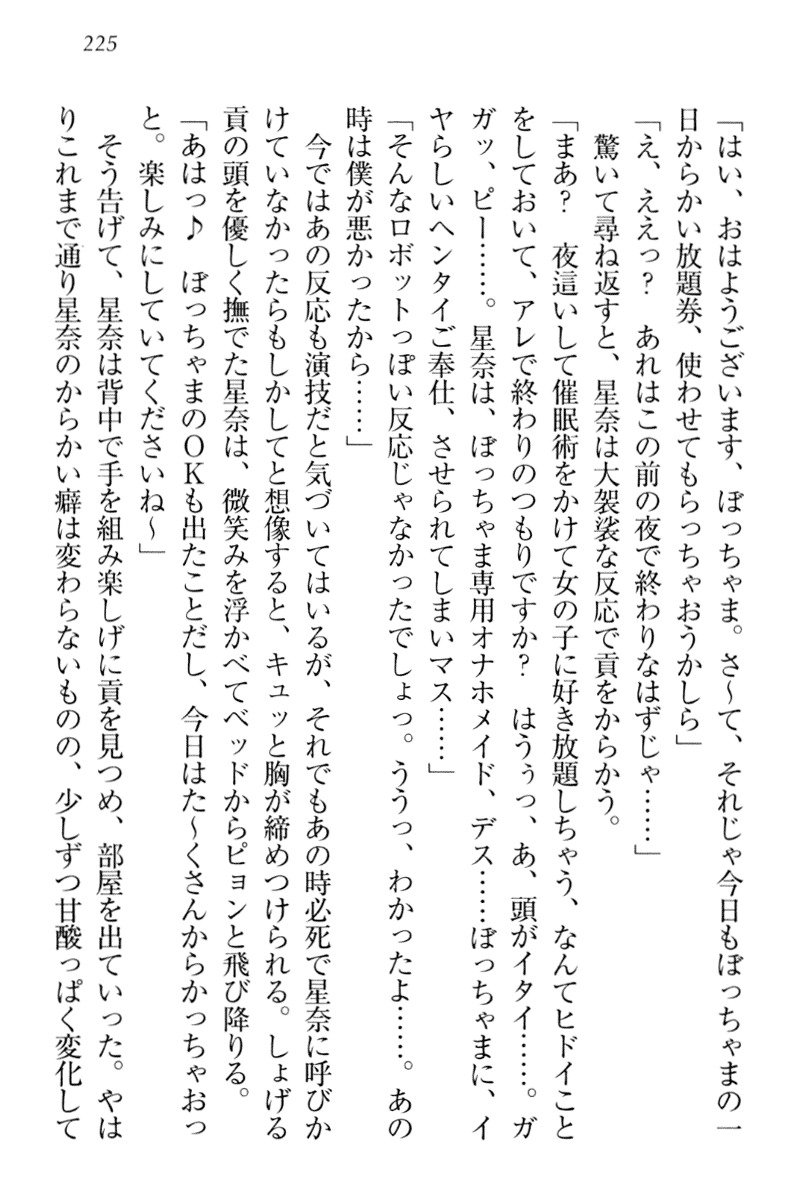 225
「はい、おはようございます、ぼっちゃま。さ～て、それじゃ今日もぼっちゃまの一
日からかい放題券、使わせてもらっちゃおうかしら」
「え、ええっ？　あれはこの前の夜で終わりなはずじゃ……」
　驚いて尋ね返すと、星奈は大袈裟な反応で貢をからかう。
「まあ？　夜這いして催眠術をかけて女の子に好き放題しちゃう、なんてヒドイこと
をしておいて、アレで終わりのつもりですか？　はうぅっ、あ、頭がイタイ……。ガ
ガッ、ピー……。星奈は、ぼっちゃま専用オナホメイド、デス……ぼっちゃまに、イ
ヤらしいヘンタイご奉仕、させられてしまいマス……」
「そんなロボットっぽい反応じゃなかったでしょっ。ううっ、わかったよ……。あの
時は僕が悪かったから……」
　今ではあの反応も演技だと気づいてはいるが、それでもあの時必死で星奈に呼びか
けていなかったらもしかしてと想像すると、キュッと胸が締めつけられる。しょげる
貢の頭を優しく撫でた星奈は、微笑みを浮かべてベッドからピョンと飛び降りる。
「あはっ♪　ぼっちゃまのＯＫも出たことだし、今日はた～くさんからかっちゃおっ
と。楽しみにしていてくださいね～」
　そう告げて、星奈は背中で手を組み楽しげに貢を見つめ、部屋を出ていった。やは
りこれまで通り星奈のからかい癖は変わらないものの、少しずつ甘酸っぱく変化して